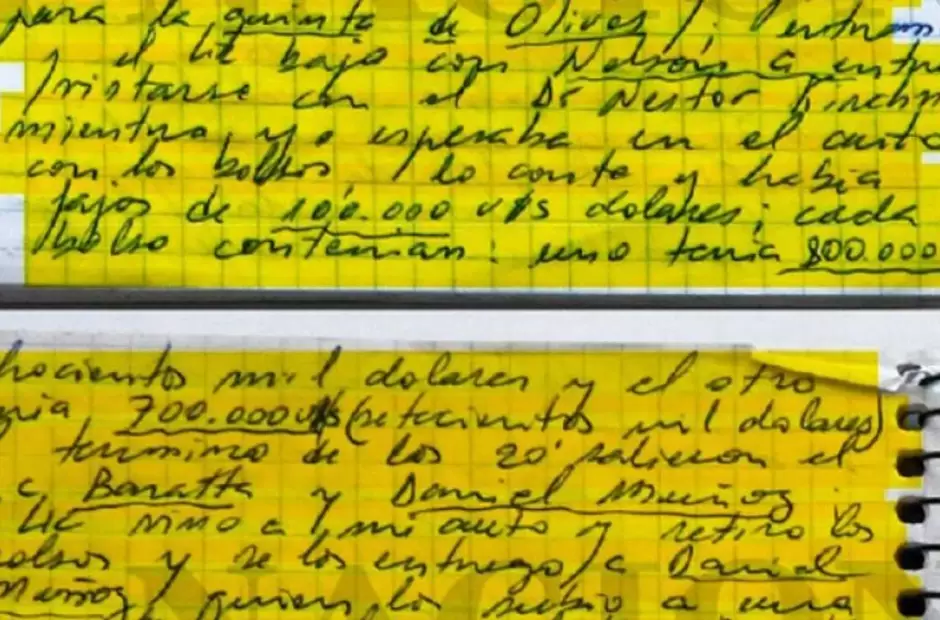 para la quinta de Olivos /. Pentram
y el Lic bajo con Nelson a entre
/vistarse con el Dr Nestor Kirchn
mientra, yo esperaba en el auto
con los bolsos / lo conte y habia
fajos de 100.000 u$s dolares; cada
/bolso contenian: uno tenia 800.000
hocientos mil dolares y el otro
nia 700.000 u$s (setecientos mil dolares)
termino de los 20' salieron el
c Baratta y Daniel Muñoz
Lic vino a mi auto y retiro los
olsos y se los entrego /a Daniel
Muñoz / quien los subio a una
NACION